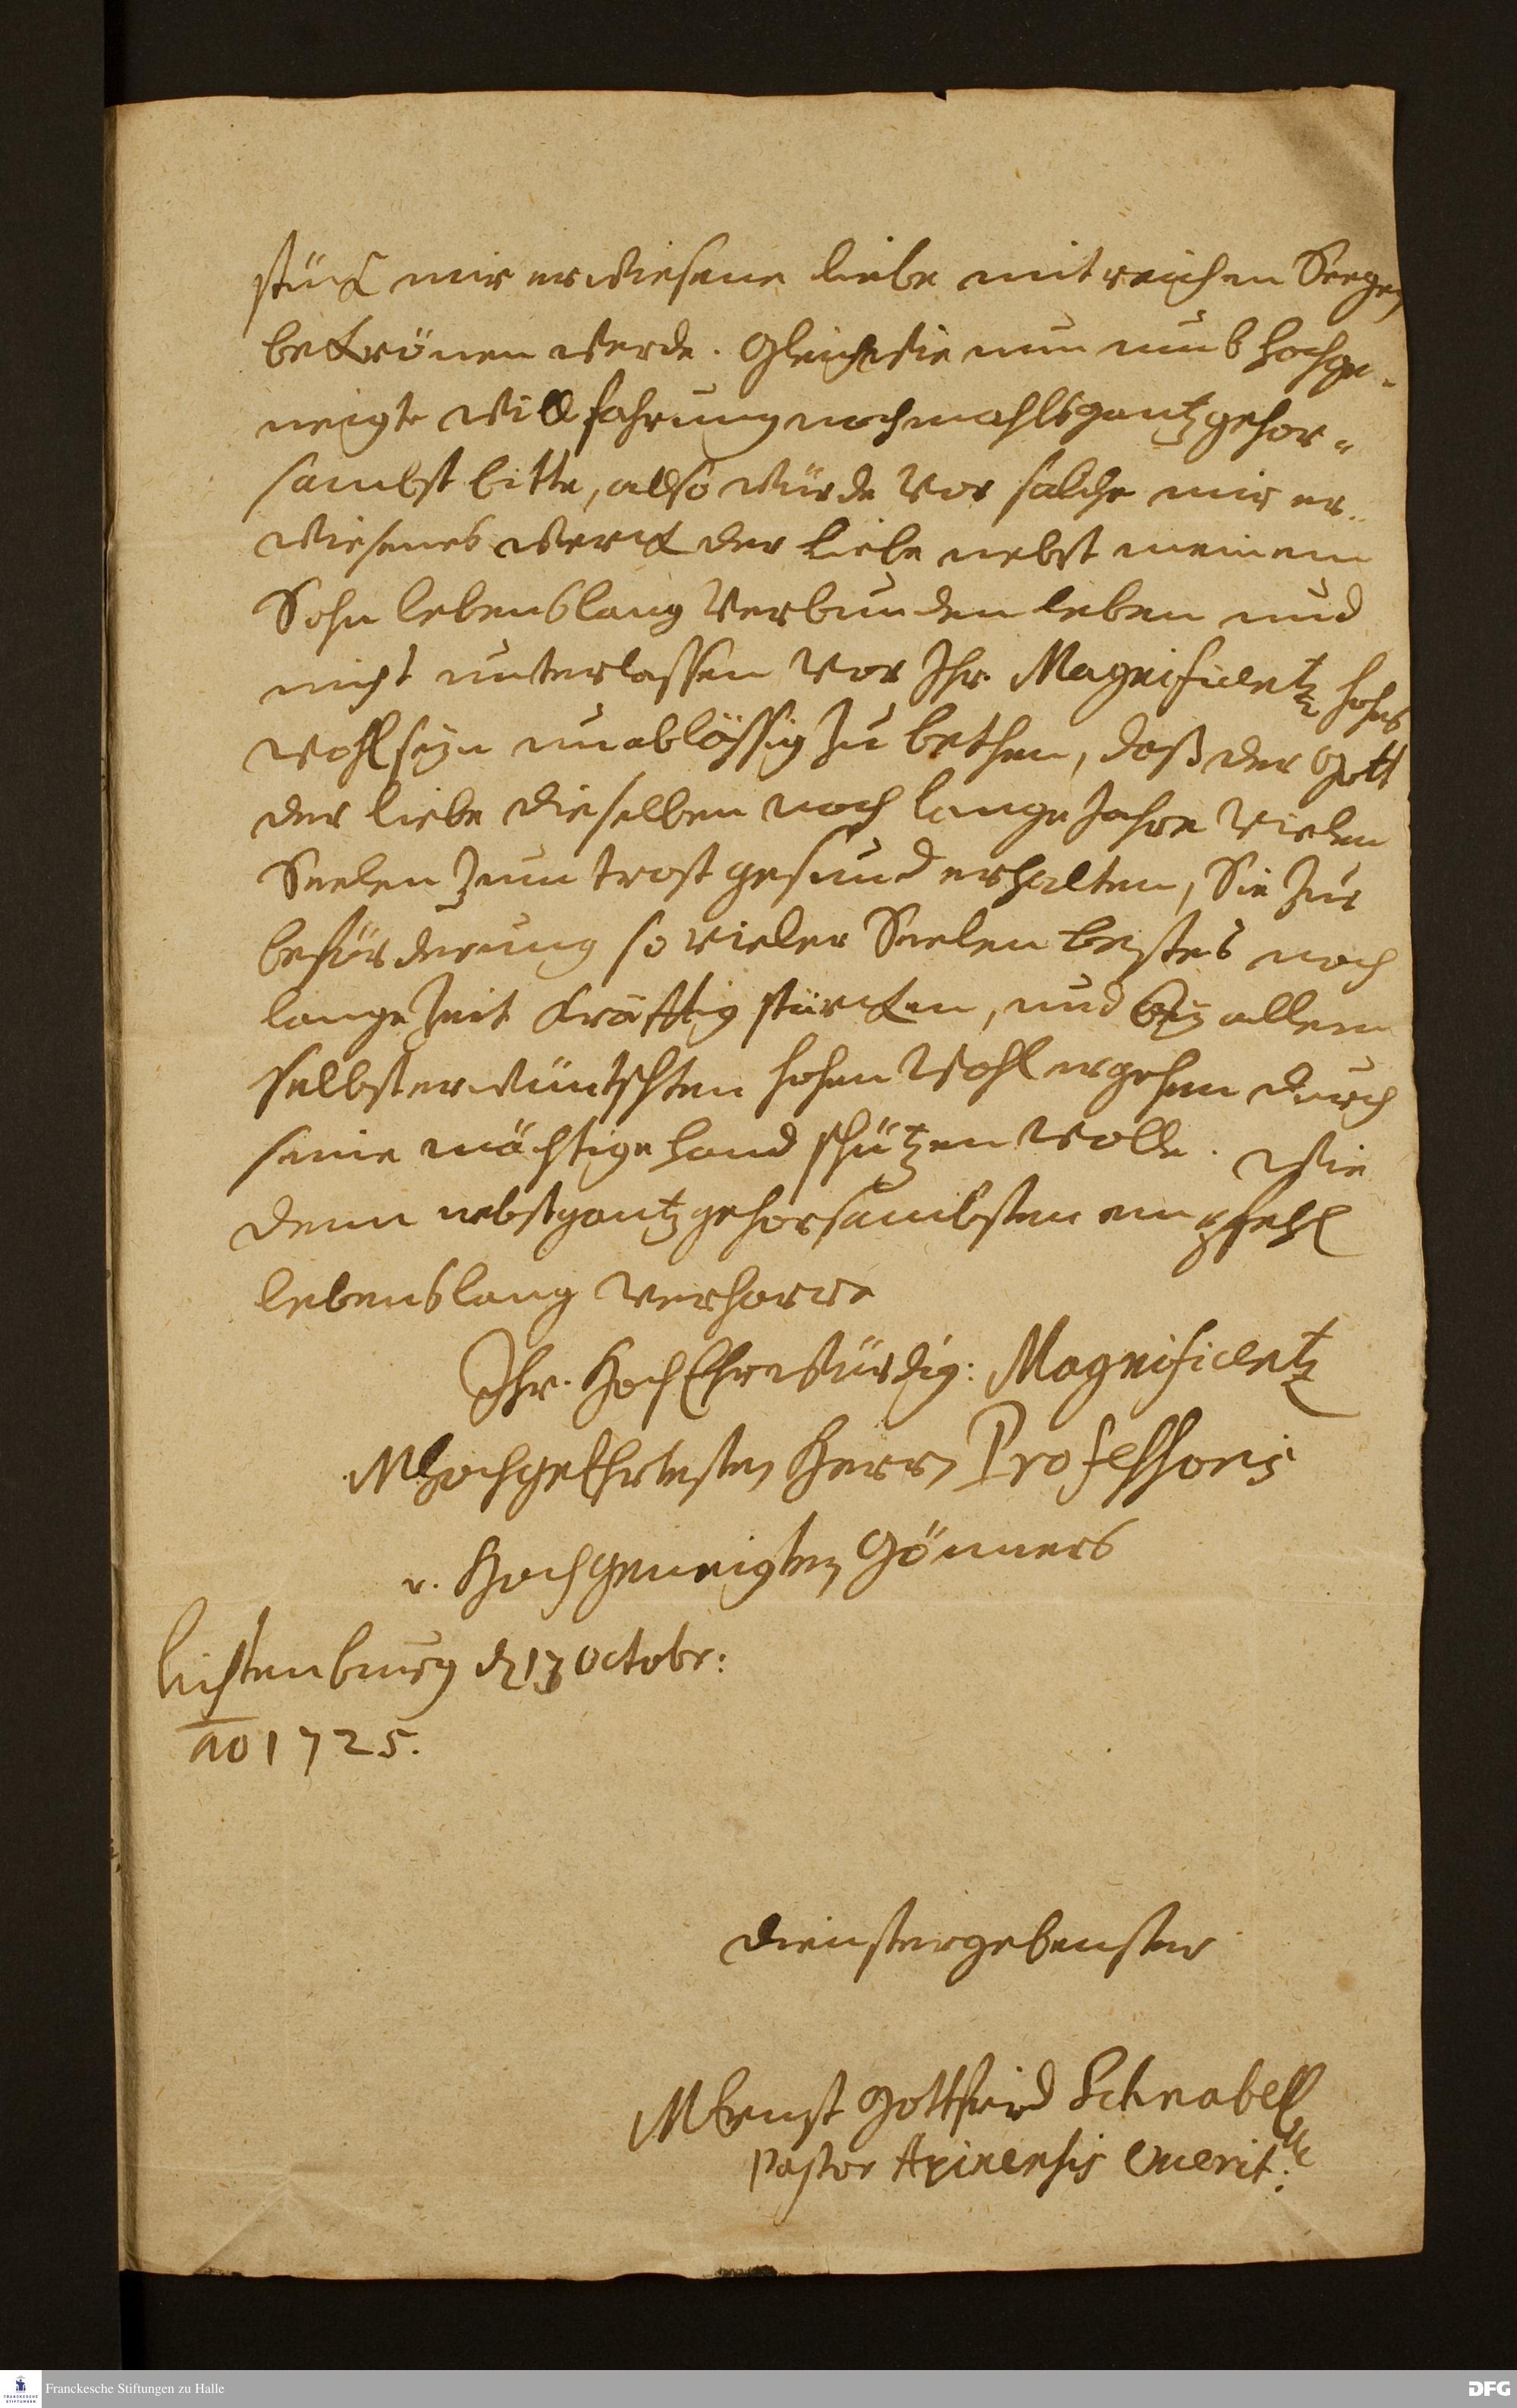 stück mir erwiesene liebe mit reichen Seegen
bekrönen werde. Gleichwie nun umb hochge-
neigte Willfahrung nochmahls gantz gehor-
sambst bitte, also würde vor solche mir er-
wiesenes werck der Liebe nebst meinem
Sohn lebenslang verbunden leben und
nicht unterlassen vor Ihr. Magnificentz hohes
wohlseyn unablässig zu bethen, daß der Gott
der liebe dieselben noch lange Jahre vielen
Seelen zum trost gesund erhalten, Sie zur
beförderung so vieler Seelen bestes noch
lange Zeit kräfftig stärcken, und bey allem
selbst erwüntschten hohen Wohlergehen durch
seine mächtige hand schützen wolle. Wie
denn nebst gantz gehorsambsten empfehl
lebenslang verharre
Ihr. HochEhrwürdig: Magnificentz
M HochgeEhrtesten Herrn Professoris
u. Hochgeneigten Gönners
Lichtenburg d 13 Octobr:
ao 1725.
dienstergebenster
M Ernst Gottfried Schnabell
Pastor Axiensis Emerit:
Franckesche Stiftungen zu Halle
DFG